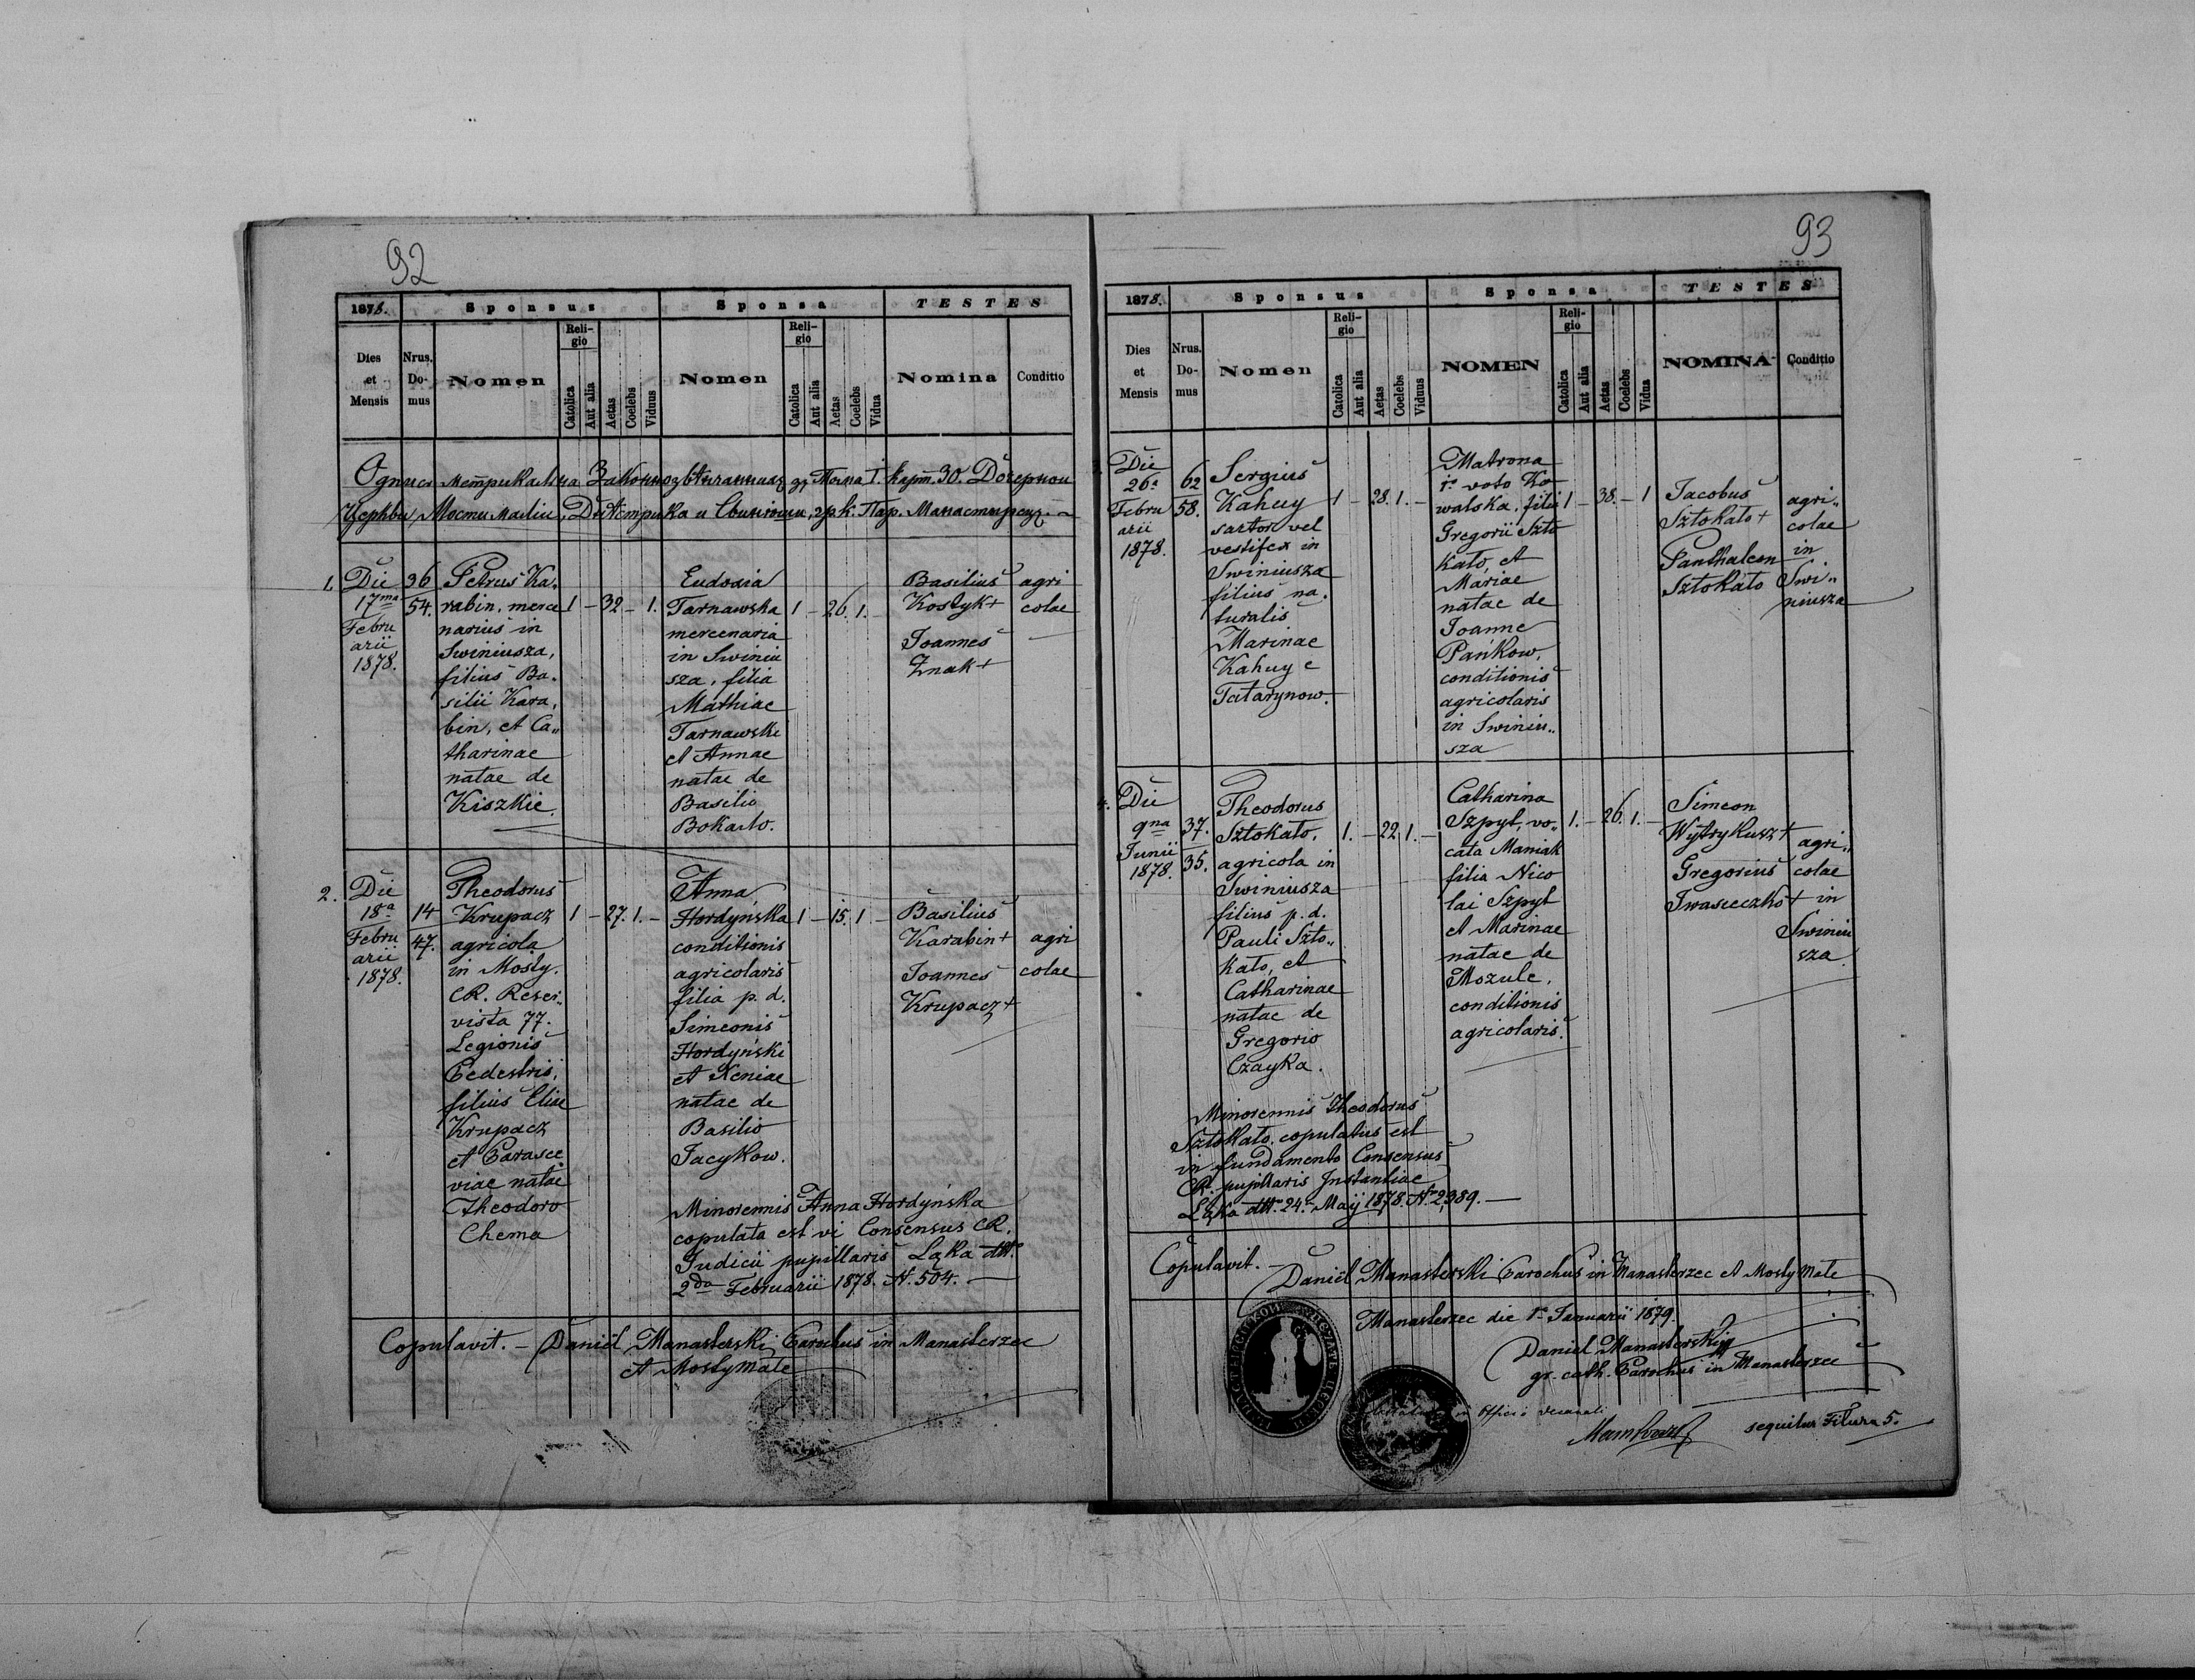 92
1878.
Sponsus
Sponsa
TESTES
Dies et Mensis
Nrus. Do- mus
Nomen
Reli- gio
Catolica
Aut alia
Aetas
Coelebs
Viduus
Nomen
Reli- gio
Catolica
Aut alia
Aetas
Coelebs
Vidua
Nomina
Conditio
30. Дочерной
Церкви, Мости малїи,
1.
Die
17ma
Febru
arii
1878.
36
54.
Petrus Ka„
rabin, merce
narius in
Swiniusza,
filius Ba„
silii Kara„
bin, et Ca„
tharinae
natae de
Kiszkie.
1 – 32 – 1.
Eudoxia
Tarnawska
mercenaria
in Swiniu
sza, filia
Mathiae
Tarnawski
et Annae
natae de
Basilio
1 – 26. 1.
Basilius
Kostyk +
Joannes
Znak +
agri
colae
2.
Die
18a
Febru
arii
1878.
14
47.
Theodorus
Krupacz
agricola
in Mosty.
CR. Reser„
vista 77.
Legionis
Pedestris,
filius Eliae
Krupacz
et Parasce
viae natae
Theodoro
Chema
1 – 27. 1. –
Anna
Hordyńska
conditionis
agricolaris
filia p. d.
Simeonis
Hordyński
et Xeniae
natae de
Basilio
Jacykow.
1 – 15. 1 –
Basilius
Karabin +
Joannes
Krupacz +
agri
colae
Minorennis Anna Hordyńska
copulata est vi Consensus CR.
Judicii pupillaris Łąka ddto
2da Februarii 1878. N. 504. –
Copulavit. – Daniel Manasterski Parochus in Manasterzec
et Mosty małe
93
1878.
Sponsus
Sponsa
TESTES
Dies et Mensis
Nrus. Do- mus
Nomen
Reli- gio
Catolica
Aut alia
Aetas
Coelebs
Viduus
NOMEN
Reli- gio
Catolica
Aut alia
Aetas
Coelebs
Vidua
NOMINA
Conditio
Die
26a
Febru
arii
1878.
62
58.
Sergius
Kahuy
sartor vel
vestifex in
Swiniusza
filius na„
turalis
Marinae
Kahuy e
Tatarynow.
1 – 28. 1. –
Matrona
1o voto Ko
walska, filia
Gregorii Szto
kało, et
Mariae
natae de
Joanne
Pańkow,
conditionis
agricolaris
in Swiniu„
sza
1 – 38. – 1
Jacobus
Sztokało +
Panthaleon
Sztokało
agri„
colae
in
Swi„
niusza
4.
Die
9na
Junii
1878.
37.
35.
Theodorus
Sztokało,
agricola in
Swiniusza
filius p. d.
Pauli Szto„
kało, et
Catharinae
natae de
Gregorio
Czayka.
1. – 22. 1. –
Catharina
Szpyt, vo„
cata Maniak
filia Nico
lai Szpyt
et Marinae
natae de
Mozule,
conditionis
agricolaris.
1. – 26. 1. –
Simeon
Wytrykusz +
Gregorius
Iwaseczko +
agri„
colae
in
Swiniu
sza.
Minorennis Theodorus
Sztokało copulatus est
in fundamento Consensus
CR. pupillaris Instantiae
Łąka ddto 24. Maij 1878. No 2,989. –
Copulavit. –
Daniel Manasterski Parochus in Manasterzec et Mosty Małe
Manasterzec die 1a Januarii 1879.
Daniel Manasterskij
gr. cath. Parochus in Manasterzec
Officio decanali
sequitur Filura 5.